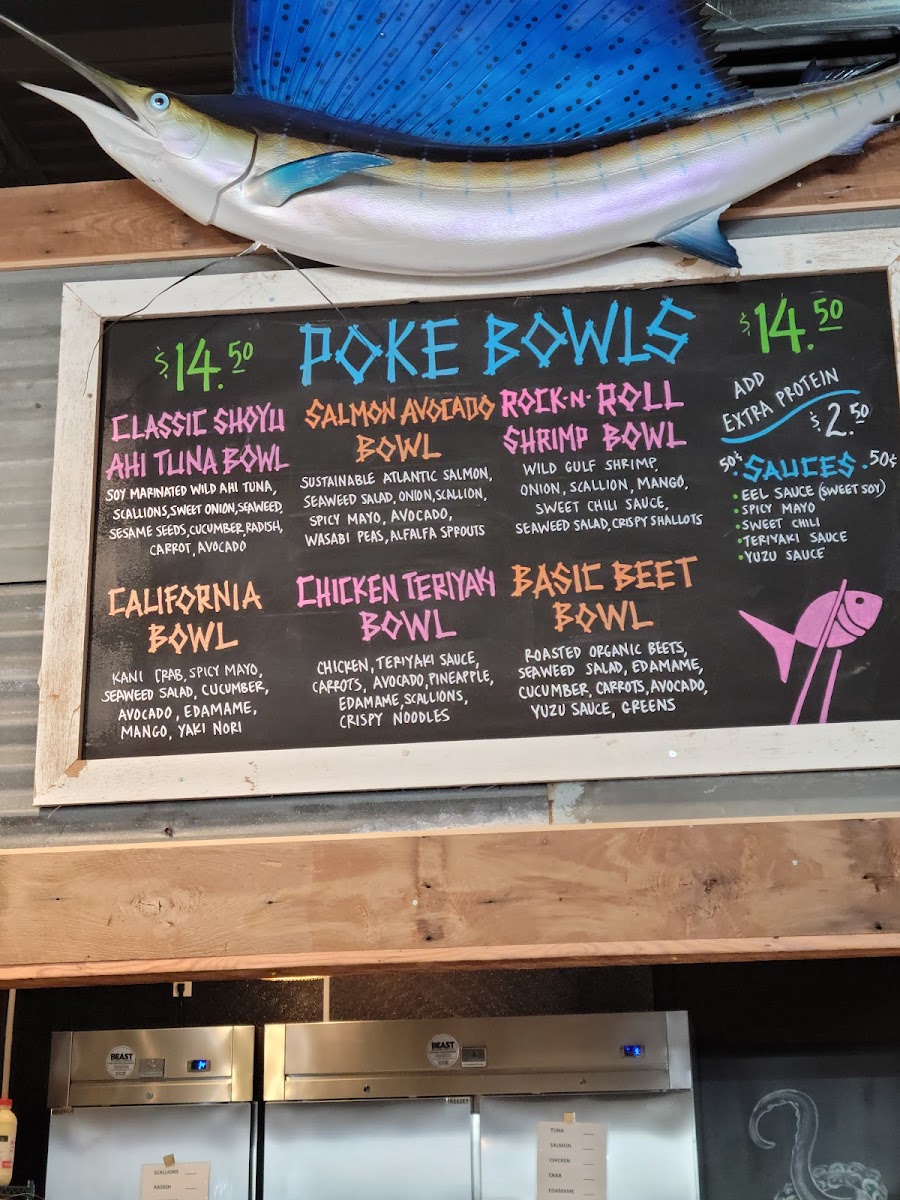 POKE BOWLS
$14.50
CLASSIC SHOYU
AHI TUNA BOWL
SOY MARINATED WILD AHI TUNA,
SCALLIONS, SWEET ONION, SEAWEED,
SESAME SEEDS, CUCUMBER, RADISH,
CARROT, AVOCADO
SALMON AVOCADO
BOWL
SUSTAINABLE ATLANTIC SALMON,
SEAWEED SALAD, ONION, SCALLION,
SPICY MAYO, AVOCADO,
WASABI PEAS, ALFALFA SPROUTS
ROCK-N-ROLL
SHRIMP BOWL
WILD GULF SHRIMP,
ONION, SCALLION, MANGO,
SWEET CHILI SAUCE,
SEAWEED SALAD, CRISPY SHALLOTS
$14.50
ADD
EXTRA PROTEIN
$2.50
50¢ SAUCES 50¢
EEL SAUCE (SWEET SOY)
SPICY MAYO
SWEET CHILI
TERIYAKI SAUCE
YUZU SAUCE
CALIFORNIA
BOWL
KANI CRAB, SPICY MAYO,
SEAWEED SALAD, CUCUMBER,
AVOCADO, EDAMAME,
MANGO, YAKI NORI
CHICKEN TERIYAKI
BOWL
CHICKEN, TERIYAKI SAUCE,
CARROTS, AVOCADO, PINEAPPLE,
EDAMAME, SCALLIONS,
CRISPY NOODLES
BASIC BEET
BOWL
ROASTED ORGANIC BEETS,
SEAWEED SALAD, EDAMAME,
CUCUMBER, CARROTS, AVOCADO,
YUZU SAUCE, GREENS
BEAST
BEAST
SCALLIONS
RADISH
TUNA
SALMON
CHICKEN
CRAB
EDAMAME